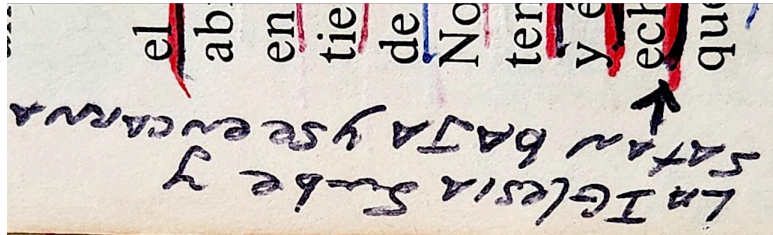 el
ab
en
tie
de
No
ten
y é
ech
que
LA IGlesia Sube y
SATAN bAJA y se encarna